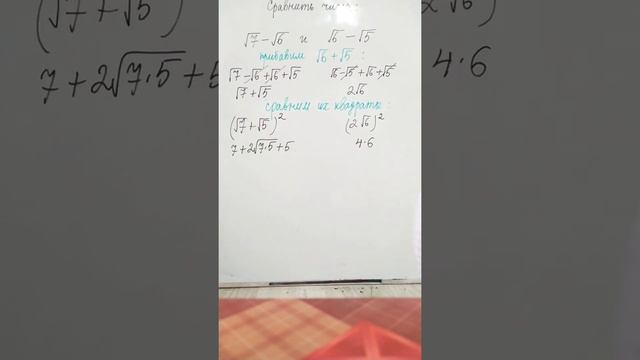 Сравнить числа:
√7 − √6 и √6 − √5
прибавим √6 + √5 :
√7 − √6 + √6 + √5 √6 − √5 + √6 + √5
√7 + √5 2√6
сравним их квадраты :
(√7 + √5)² (2√6)²
7 + 2√7·5 + 5 4·6